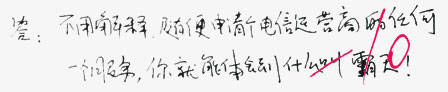 答：不用解释，随便申请个电信运营商的任何
一门服务，你就能体会到什么叫霸王！